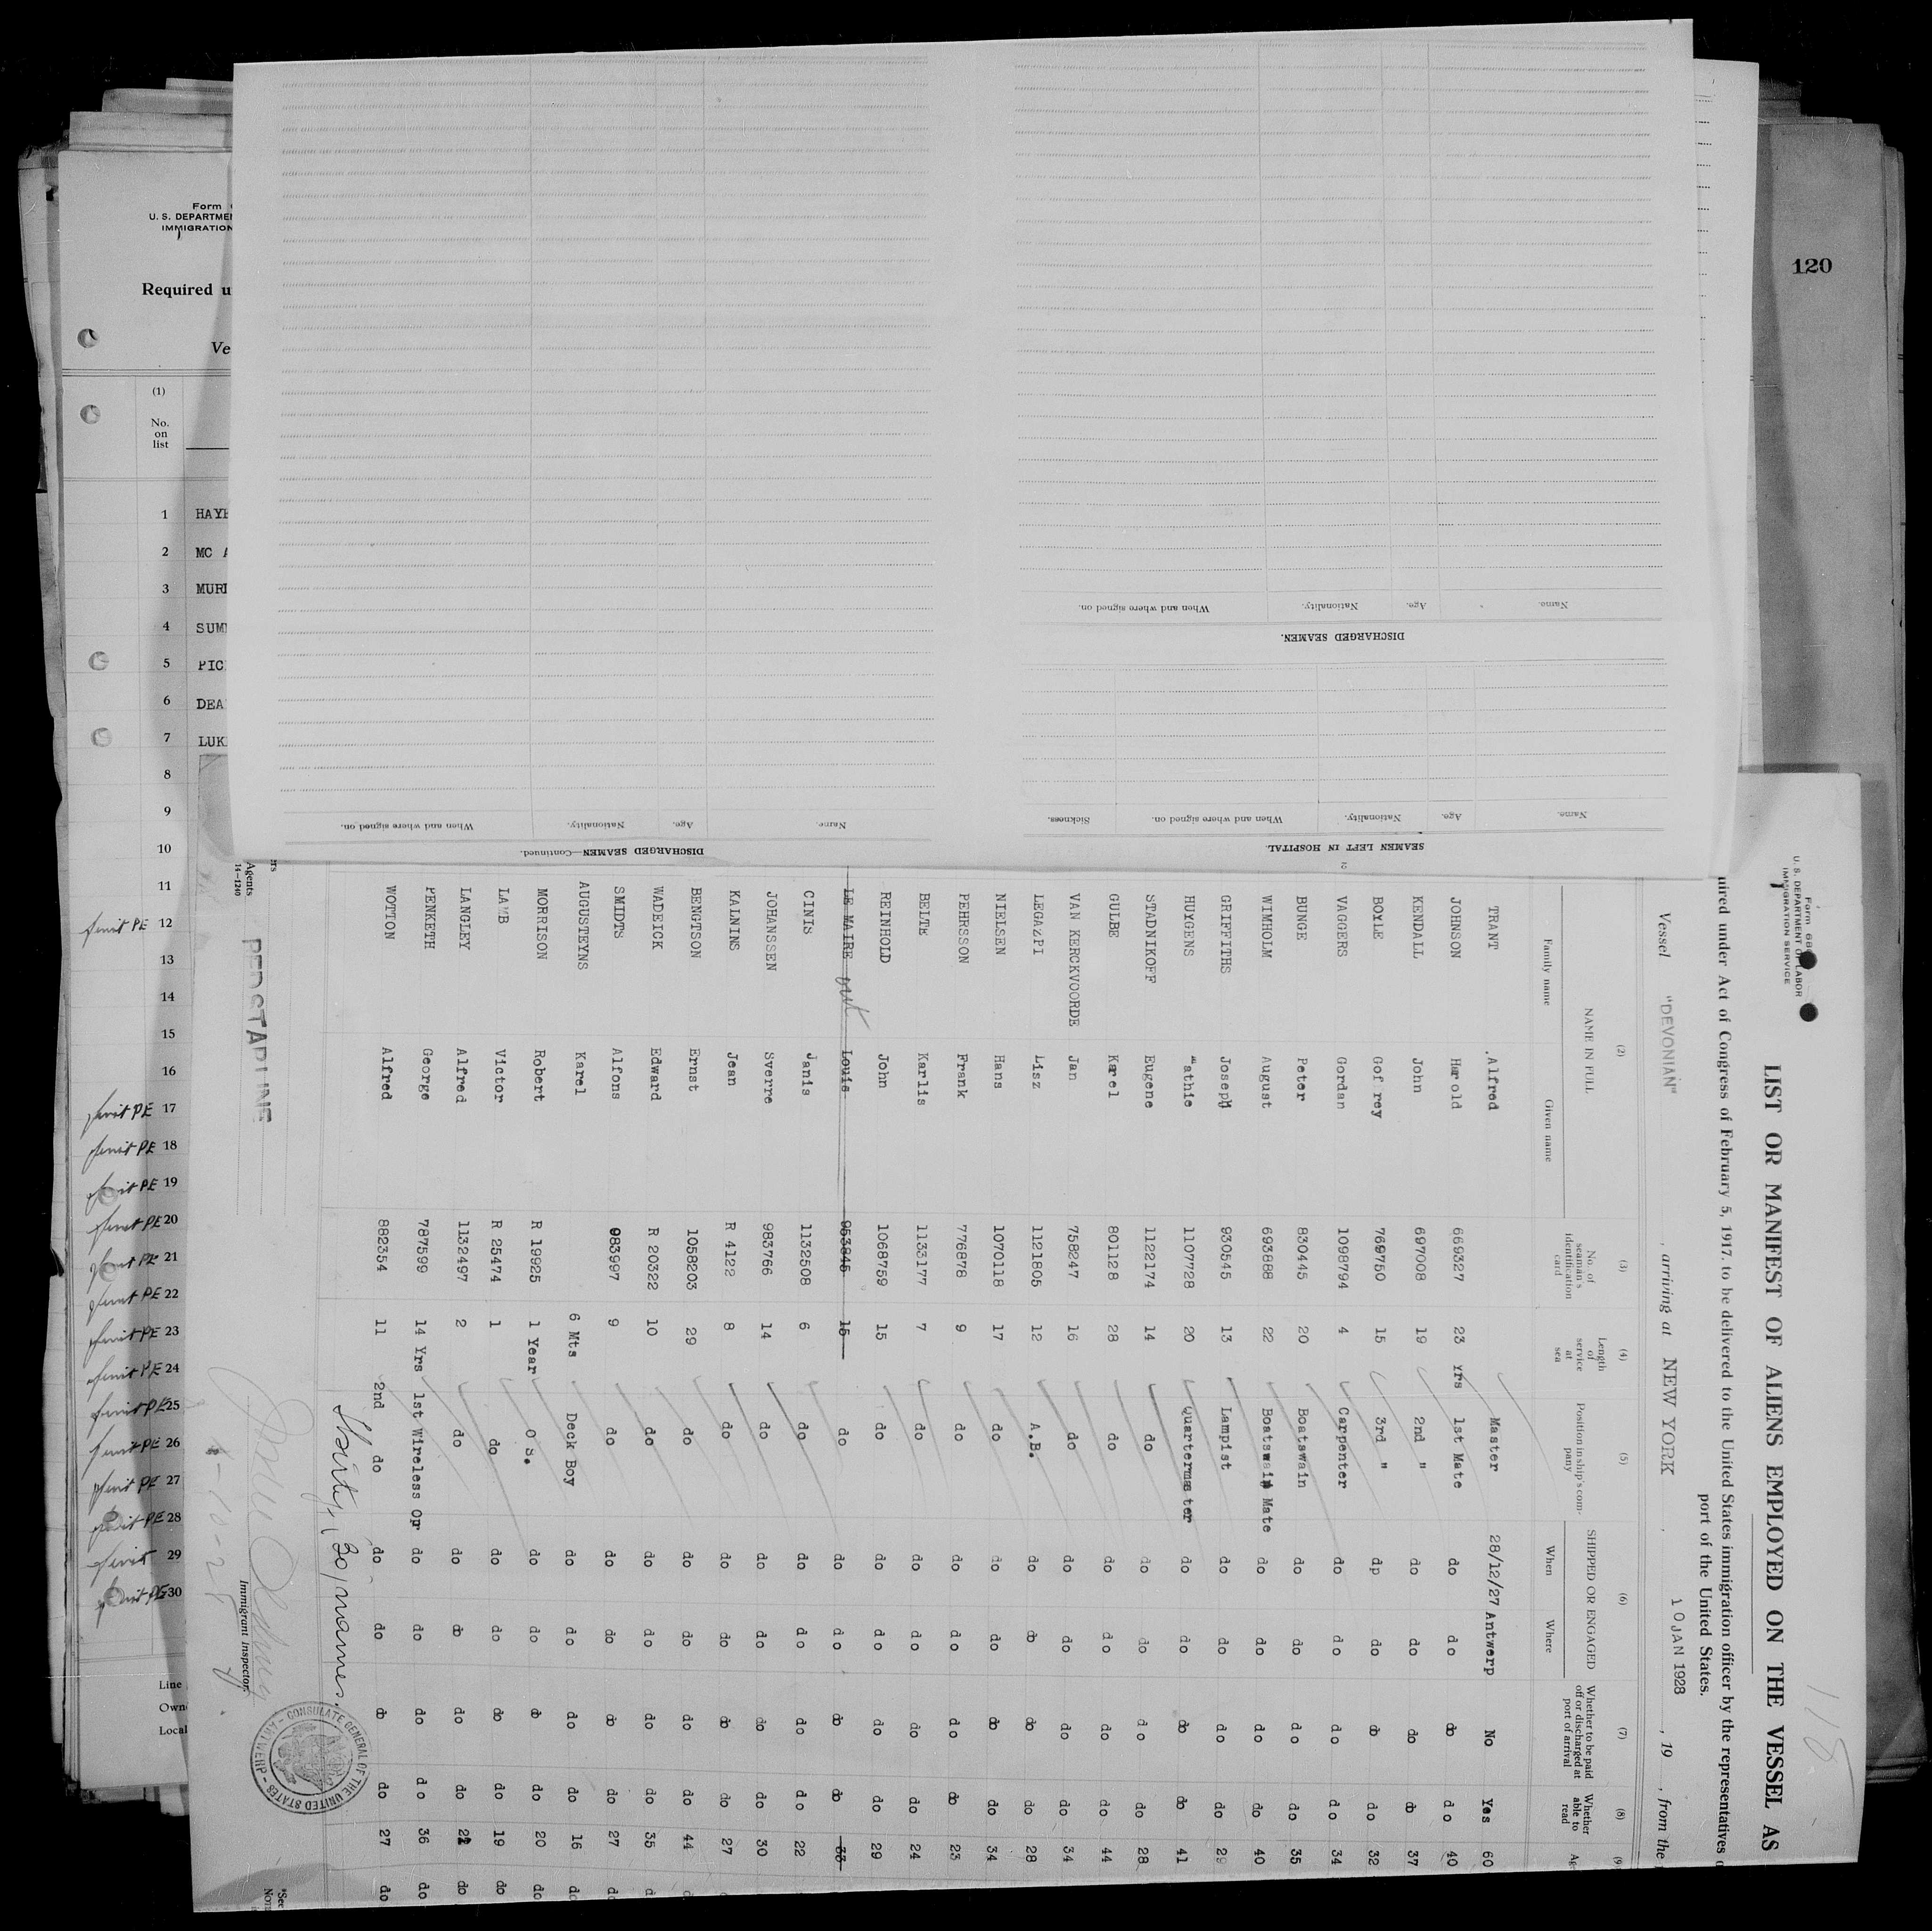 120
Form
U. S. DEPARTME
IMMIGRATION
Required u
Ve
(1)
No.
on
list
1 HAY
2 MC A
3 MUR
4 SUM
5 PIC
6 DEA
7 LUK
8
9
10
11
permit PE 12
13
14
15
16
permit PE 17
permit PE 18
permit PE 19
permit PE 20
permit PE 21
permit PE 22
permit PE 23
permit PE 24
permit PE 25
permit PE 26
permit PE 27
permit PE 28
permit 29
permit PE 30
Line
Own
Local
DISCHARGED SEAMEN—Continued.
Name. Age. Nationality. When and where signed on.
2
SEAMEN LEFT IN HOSPITAL.
Name. Age. Nationality. When and where signed on. Sickness.
DISCHARGED SEAMEN.
Name. Age. Nationality. When and where signed on.
118
Form 68
U. S. DEPARTMENT OF LABOR
IMMIGRATION SERVICE
LIST OR MANIFEST OF ALIENS EMPLOYED ON THE VESSEL AS
uired under Act of Congress of February 5, 1917, to be delivered to the United States immigration officer by the representatives
port of the United States.
Vessel "DEVONIAN" , arriving at NEW YORK , 10 JAN 1928 , 19 , from the
(2) (3) (4) (5) (6) (7) (8) (9)
NAME IN FULL
Family name Given name
No. of seaman's identification card
Length of service at sea
Position in ship's company
SHIPPED OR ENGAGED
When Where
Whether to be paid off or discharged at port of arrival
Whether able to read
Ag
TRANT Alfred Master 28/12/27 Antwerp No Yes 60
JOHNSON Harold 669327 23 yrs 1st Mate do do do do 40
KENDALL John 697008 19 2nd " do do do do 37
BOYLE Gof rey 769750 15 3rd " dp do do do 32
VAGGERS Gordan 1098794 4 Carpenter do do do do 34
BUNGE Peter 830445 20 Boatswain do do do do 35
WIMHOLM August 693888 22 Boatswain Mate do do do do 40
GRIFFITHS Joseph 930545 13 Lampist do do do do 29
HUYGENS Mathie 1107728 20 Quartermaster do do do do 41
STADNIKOFF Eugene 1122174 14 do do do do do 28
GULBE Karel 801128 28 do do do do do 44
VAN KERCKVOORDE Jan 758247 16 do do do do do 34
LEGAZPI Lisz 1121805 12 A.B. do do do do 28
NIELSEN Hans 1070118 17 do do do do do 34
PEHRSSON Frank 776878 9 do do do do do 23
BELTE Karlis 1133177 7 do do do do do 24
REINHOLD John 1068759 15 do do do do do 29
LE MAIRE out Louis 953845 15 do do do do do 33
CINIS Janis 1132508 6 do do do do do 22
JOHANSSEN Sverre 983766 14 do do do do do 30
KALNINS Jean R 4122 8 do do do do do 27
BENGTSON Ernst 1058203 29 do do do do do 44
WADEICK Edward R 20322 10 do do do do do 35
SMIDTS Alfons 983997 9 do do do do do 27
AUGUSTEYNS Karel 6 Mts Deck Boy do do do do 16 do
MORRISON Robert R 19925 1 Year O S. do do do do 20 do
LAMB Victor R 25474 1 do do do do do 19 do
LANGLEY Alfred 1132497 2 do do do do do 22 do
PENKETH George 787599 14 Yrs 1st Wireless Opr do do do do 36 do
WOTTON Alfred 882354 11 2nd do do do do do 27 do
Thirty, (30) names.
CONSULATE GENERAL OF THE UNITED STATES
RED STAR LINE
rs
Agents
14-1240
Immigrant Inspector.
*See